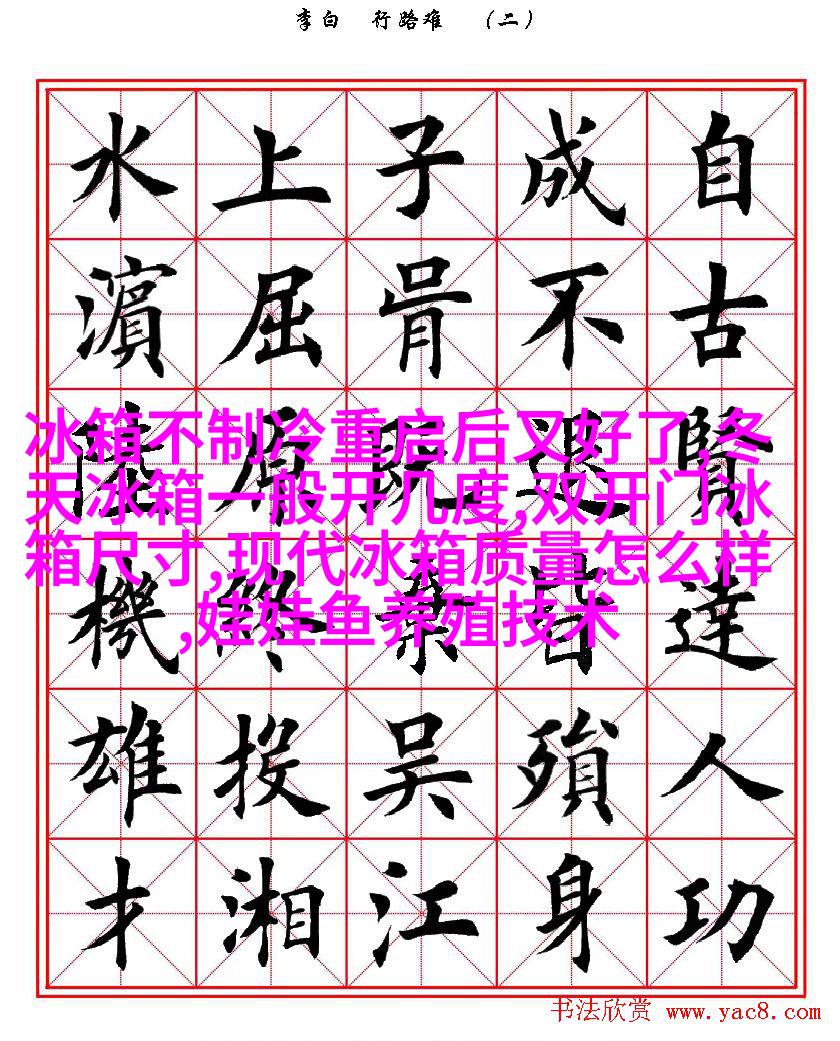 李白 行路难 （二）
自古賢達人功
成不退皆殞身
子胥既棄吳江
上屈原終投湘
水濱陸機雄才
冰箱不制冷重启后又好了,冬
天冰箱一般开几度,双开门冰
箱尺寸,现代冰箱质量怎么样
,娃娃鱼养殖技术
书法欣赏 www.yac8.com